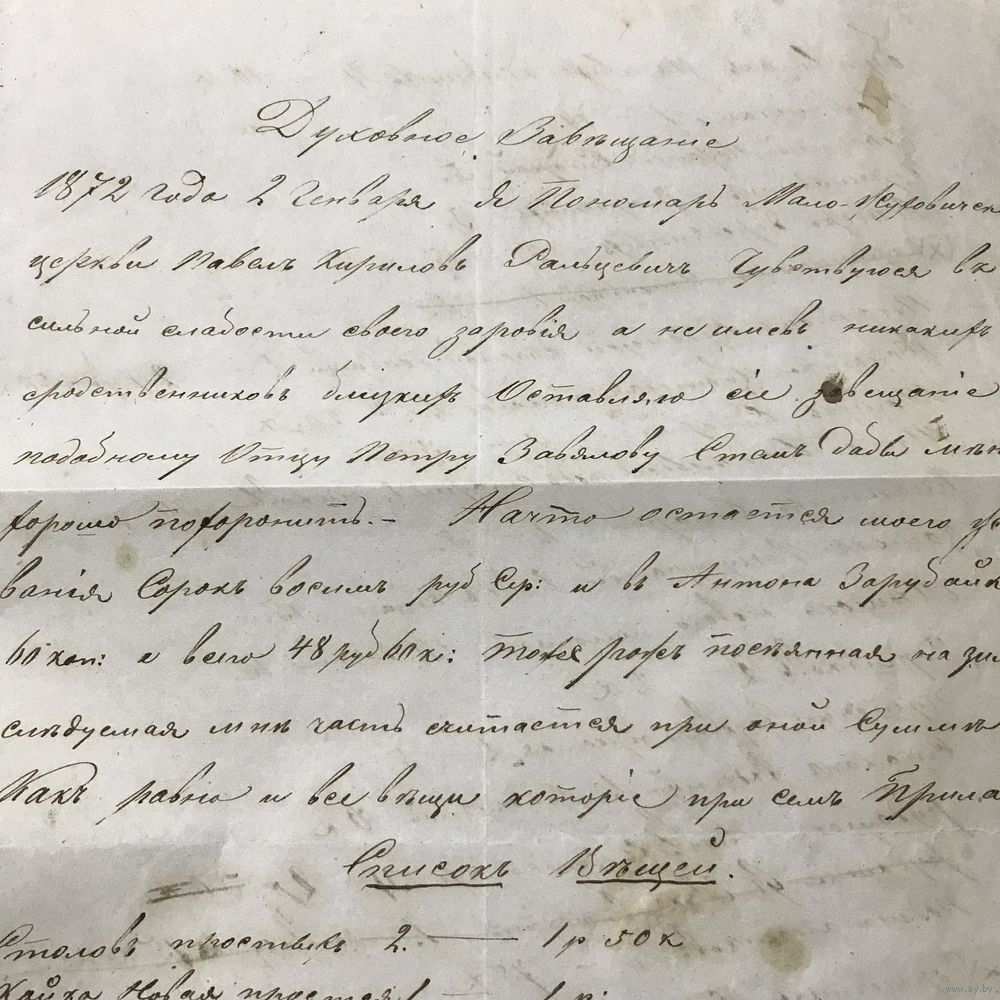 Духовное Завѣщаніе
1872 года 2 Генваря Я Пономарь Мало-
церкви Павелъ Кириловъ Ральцевичъ Чувствуюся въ
сильной слабости своего заровія а не имевъ никакихъ
сродственниковъ близкихъ Оставляю сіе завещаніе
подобному Отцу Петру Завялову Стемъ дабы мнѣ
хорошо похоронить.- Начто остается моего
ванія Сорокъ восимъ руб Сер: и въ Антона
60 коп: а всего 48 руб 60 к: тоже рожъ посѣянная на
слѣдуемая мнѣ часть считается при оной Суммѣ
Какъ равно и все вѣщи которіе при семъ Прила
Списокъ Вѣщей.
Столовъ простыхъ 2. — 1 р 50 к
Новая простая 1 — 1 р:
www.ay.by